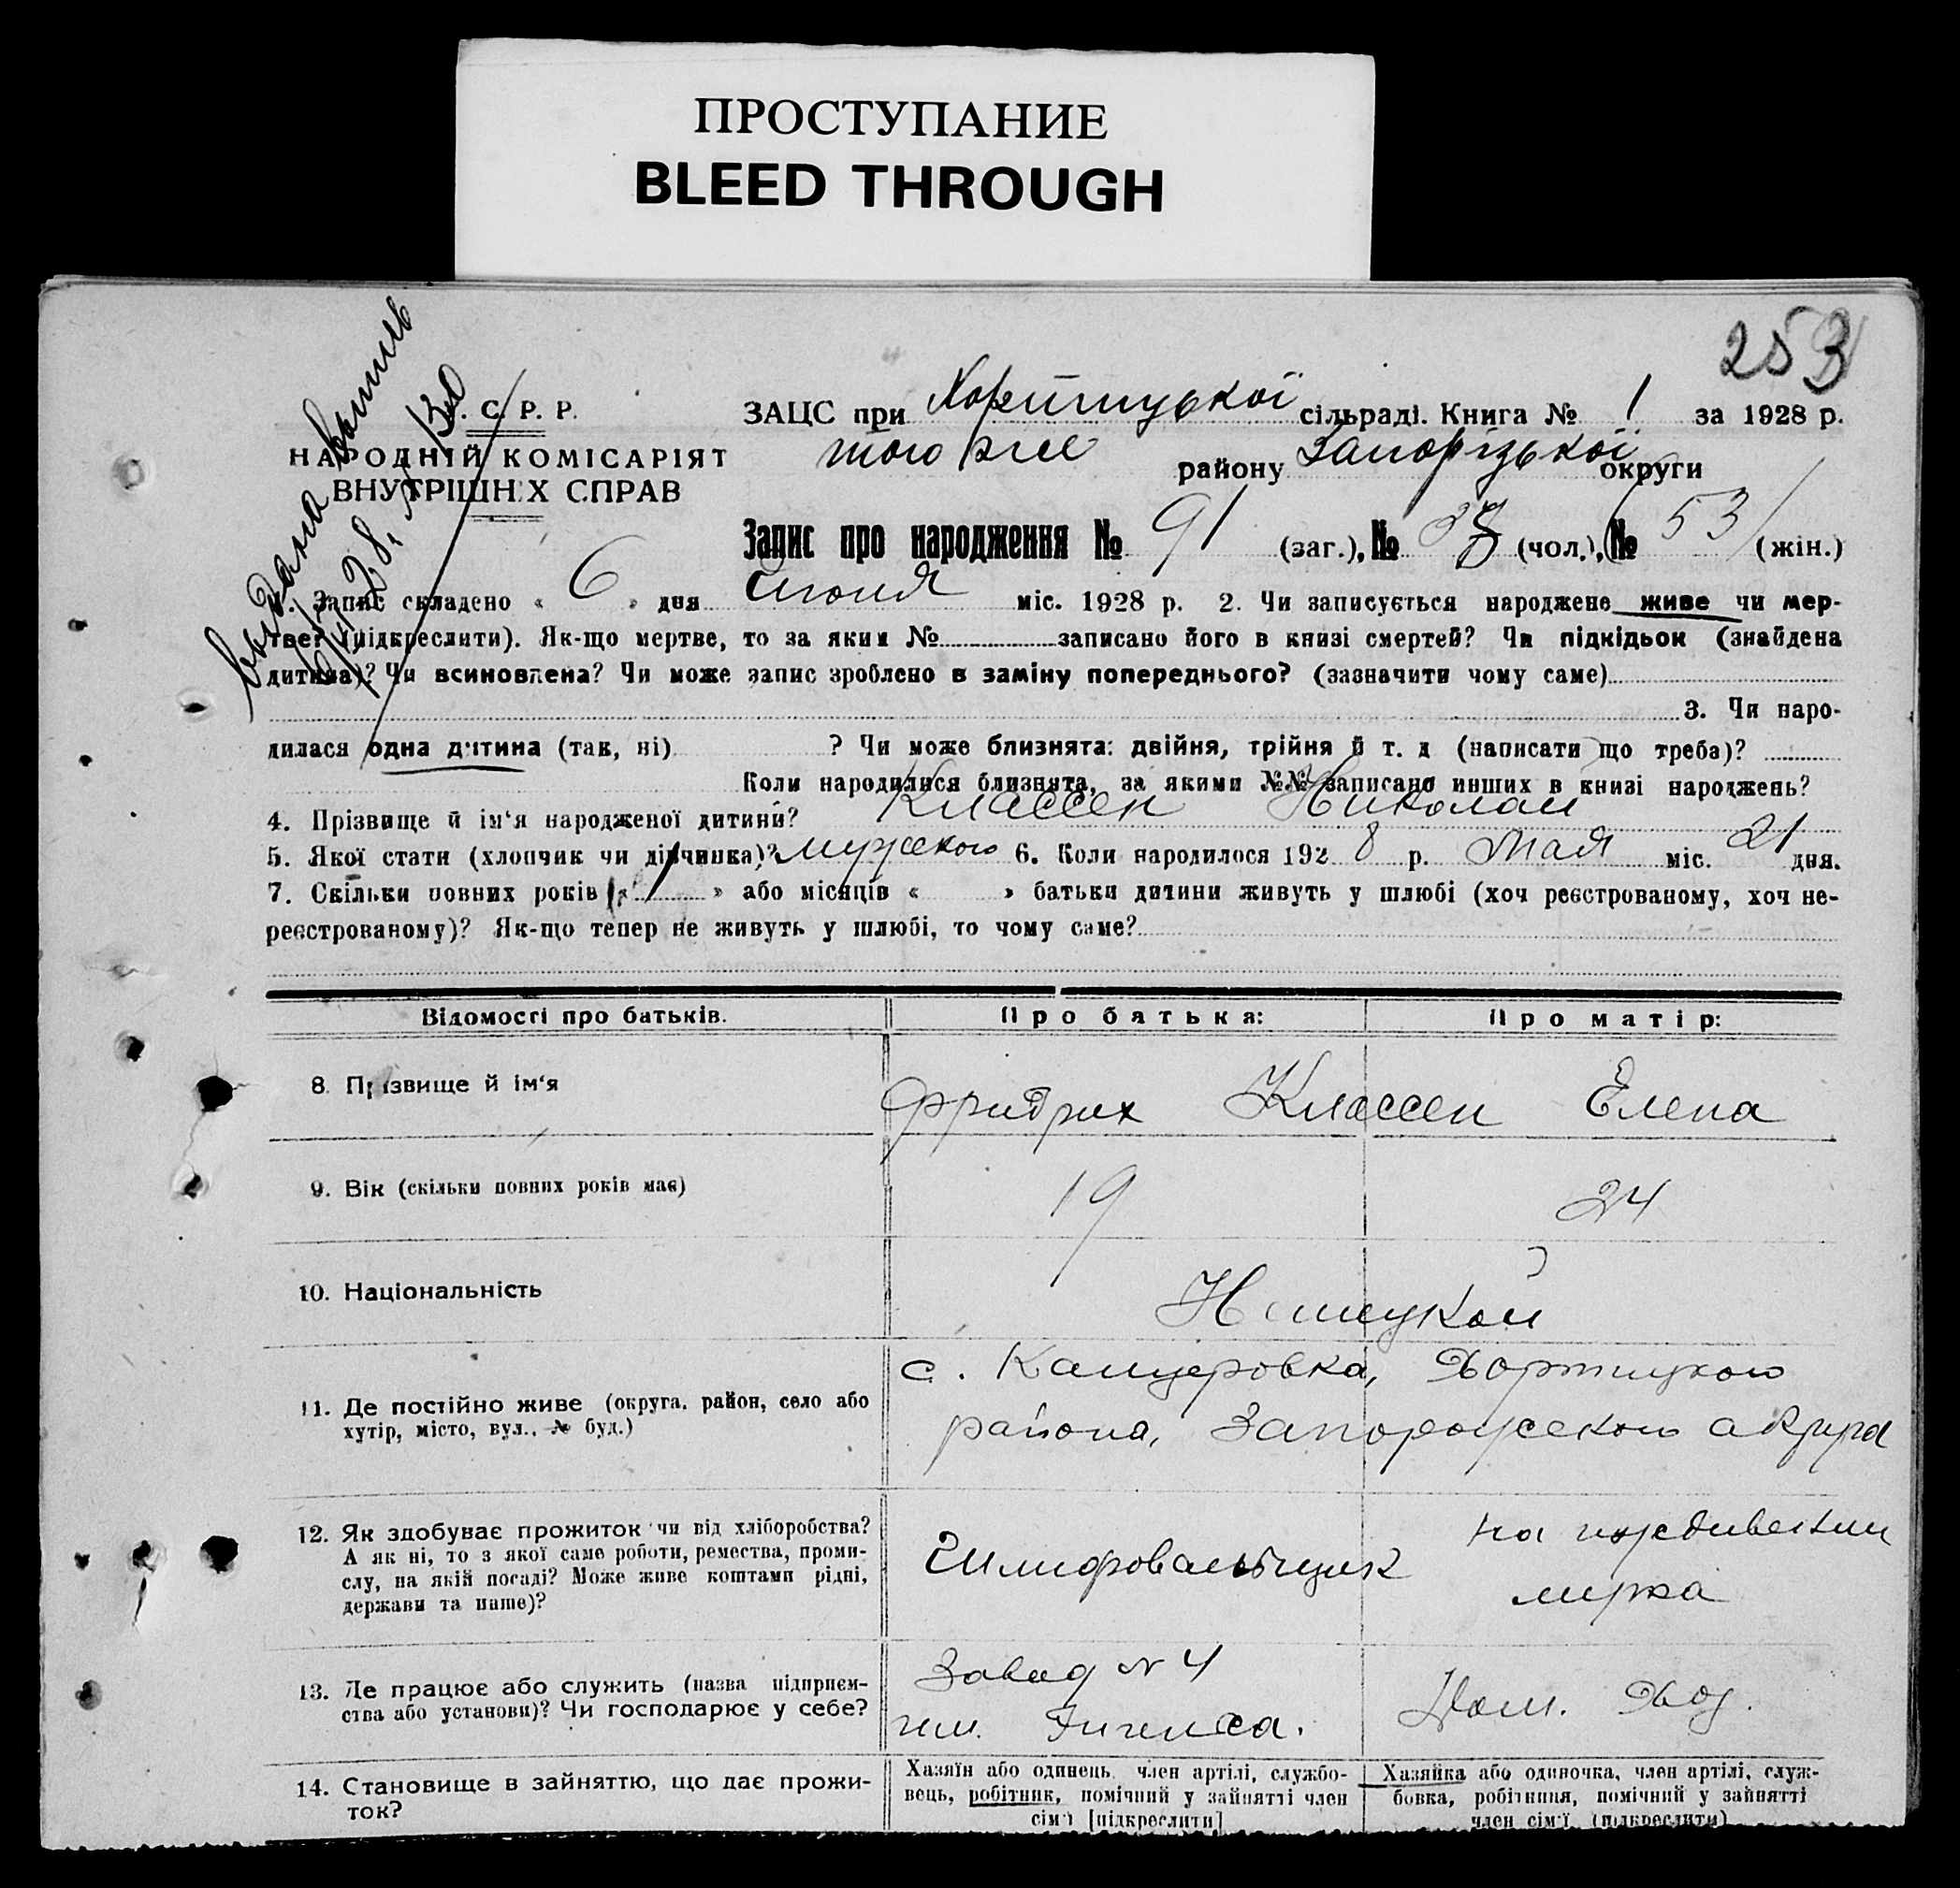 ПРОСТУПАНИЕ
BLEED THROUGH
253
Видана випись
6/VI 28, № 130
. С. Р. Р.
НАРОДНІЙ КОМІСАРІЯТ
ВНУТРІШНІХ СПРАВ
ЗАЦС при Хортицької сільраді. Книга № 1 за 1928 р.
того же району Запорізької округи
Запис про народження № 91 (заг.), № 38 (чол.), № 53 (жін.)
1. Запис складено « 6 » дня Июня міс. 1928 р. 2. Чи записується народжене живе чи мер-
тве? (підкреслити). Як-що мертве, то за яким № записано його в книзі смертей? Чи підкідьок (знайдена
дитина)? Чи всиновлена? Чи може запис зроблено в заміну попереднього? (зазначити чому саме)
3. Чи наро-
дилася одна дитина (так, ні) ? Чи може близнята: двійня, трійня й т. д (написати що треба)?
Коли народилися близнята, за якими №№ записано инших в книзі народжень?
4. Прізвище й ім‘я народженої дитини? Классен Николай
5. Якої стати (хлопчик чи дівчинка)? мужского 6. Коли народилося 1928 р. Мая міс. 21 дня.
7. Скільки повних років « 1 » або місяців « » батьки дитини живуть у шлюбі (хоч реєстрованому, хоч не-
реєстрованому)? Як-що тепер не живуть у шлюбі, то чому саме?
Відомості про батьків. Про батька: Про матір:
8. Прізвище й ім‘я Фридрих Классен Елена
9. Вік (скільки повних років має) 19 24
10. Національність Немецкой
11. Де постійно живе (округа, район, село або
хутір, місто, вул., № буд.)
с. Канцеровка, Хортицкого
района, Запорожского округа
12. Як здобуває прожиток чи від хліборобства?
А як ні, то з якої саме роботи, ремества, проми-
слу, на якій посаді? Може живе коштами рідні,
держави та инше)?
Шлифовальщик
на иждивении
мужа
13. Де працює або служить (назва підприєм-
ства або установи)? Чи господарює у себе?
Завод № 4
им. Энгельса.
Дом. Хоз.
14. Становище в зайняттю, що дає прожи-
ток?
Хазяїн або одинець, член артілі, службо-
вець, робітник, помічний у зайнятті член
сім‘ї [підкреслити]
Хазяйка або одиночка, член артілі, служ-
бовка, робітниця, помічний у зайнятті
член сім‘ї (підкреслити)